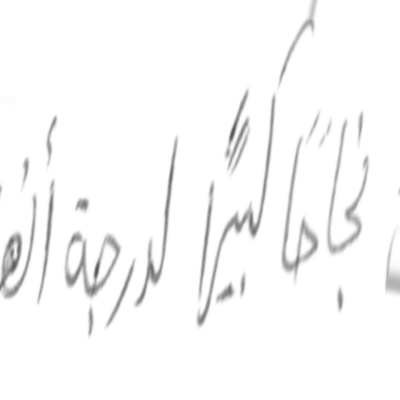 نجاحًا كبيرًا لدرجة أنها